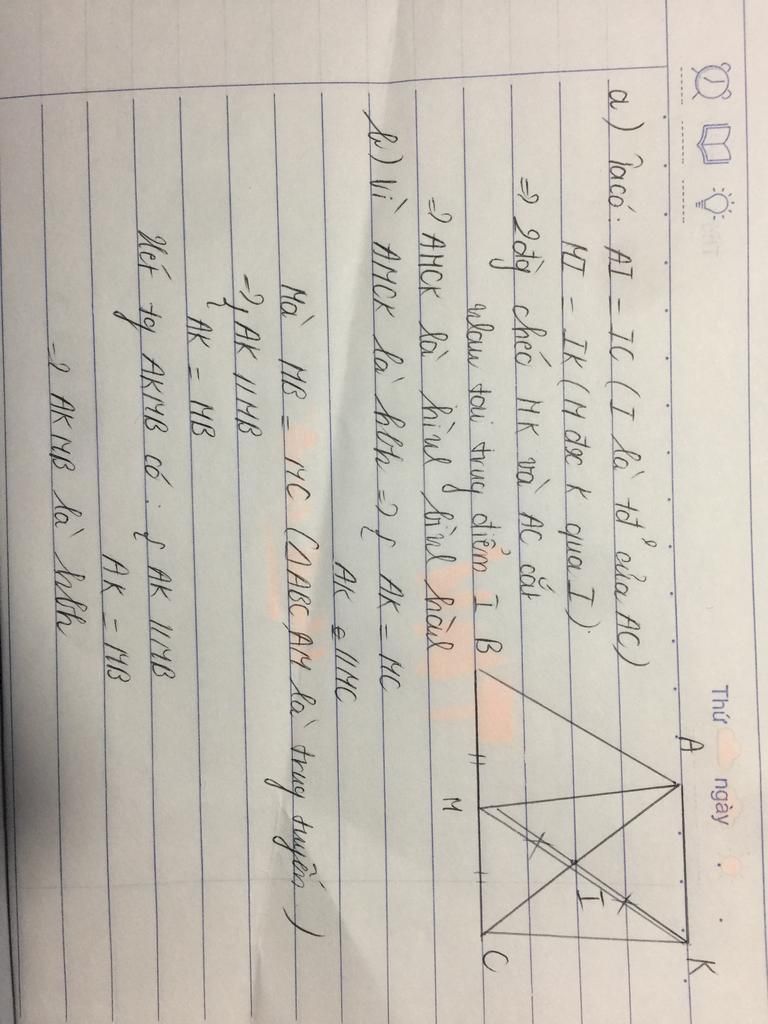 Thứ ngày
a) Ta có: AI = IC (I là tđ của AC)
MI = IK (M đx K qua I)
=> 2 đg chéo MK và AC cắt
nhau tại trug điểm I
=> AMCK là hình bình hành
A
K
I
B
M
C
b) Vì AMCK là hbh => { AK = MC
AK // MC
Mà MB = MC (ΔABC, AM là trug tuyến)
=> { AK // MB
AK = MB
Xét tg AKMB có: { AK // MB
AK = MB
=> AKMB là hbh